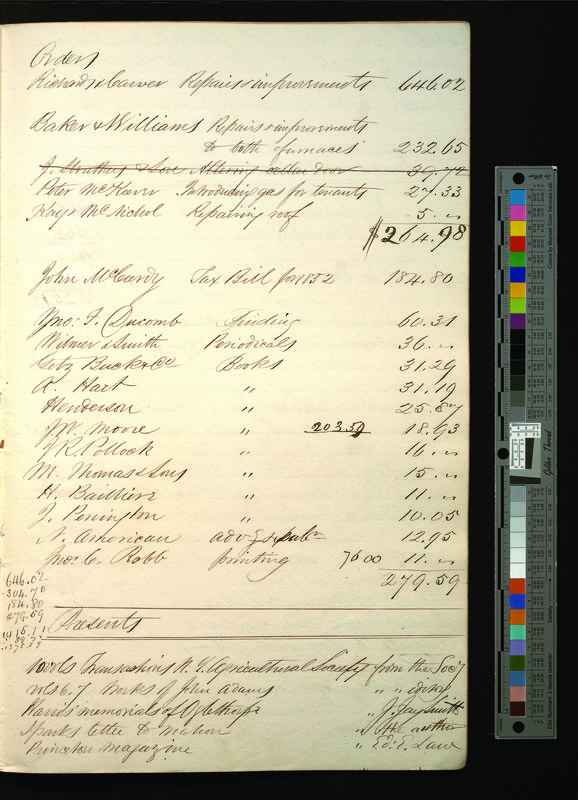 Orders
Richards & Carver Repairs & improvements 646.02
Baker & Williams Repairs & improvements
to both furnaces 232.65
J. Struthers & Son Altering cellar door 39.72
Peter McKaver Introducing gas for tenants 27.33
Hays McNichol Repairing roof 5. "
$264.98
John McCurdy Tax Bill for 1852 184.80
Jno: F. Ducomb Binding 60.31
Witmer & Smith Periodicals 36. "
Getz Buck & Co Books 31.29
A. Hart " 31.19
Henderson " 25.87
J W. Moore " 203.59 18.93
J R Pollock " 16. "
M. Thomas & Sons " 15. "
H. Bailliere " 11. "
J. Penington " 10.05
N. American advg & subn 12.95
Jno: C. Robb printing 76 00 11. "
279.59
646.02
304.70
184.80
279.59
Presents
10 vols Transactions N. Y. Agricultural Society from the Socy
vols 6, 7 Works of John Adams " " editor
Ward's memorials of Oglethorpe " J. Jay Smith
Sparks letter to Mahon " the author
Princeton Magazine " Ed: E. Law
Golden Thread